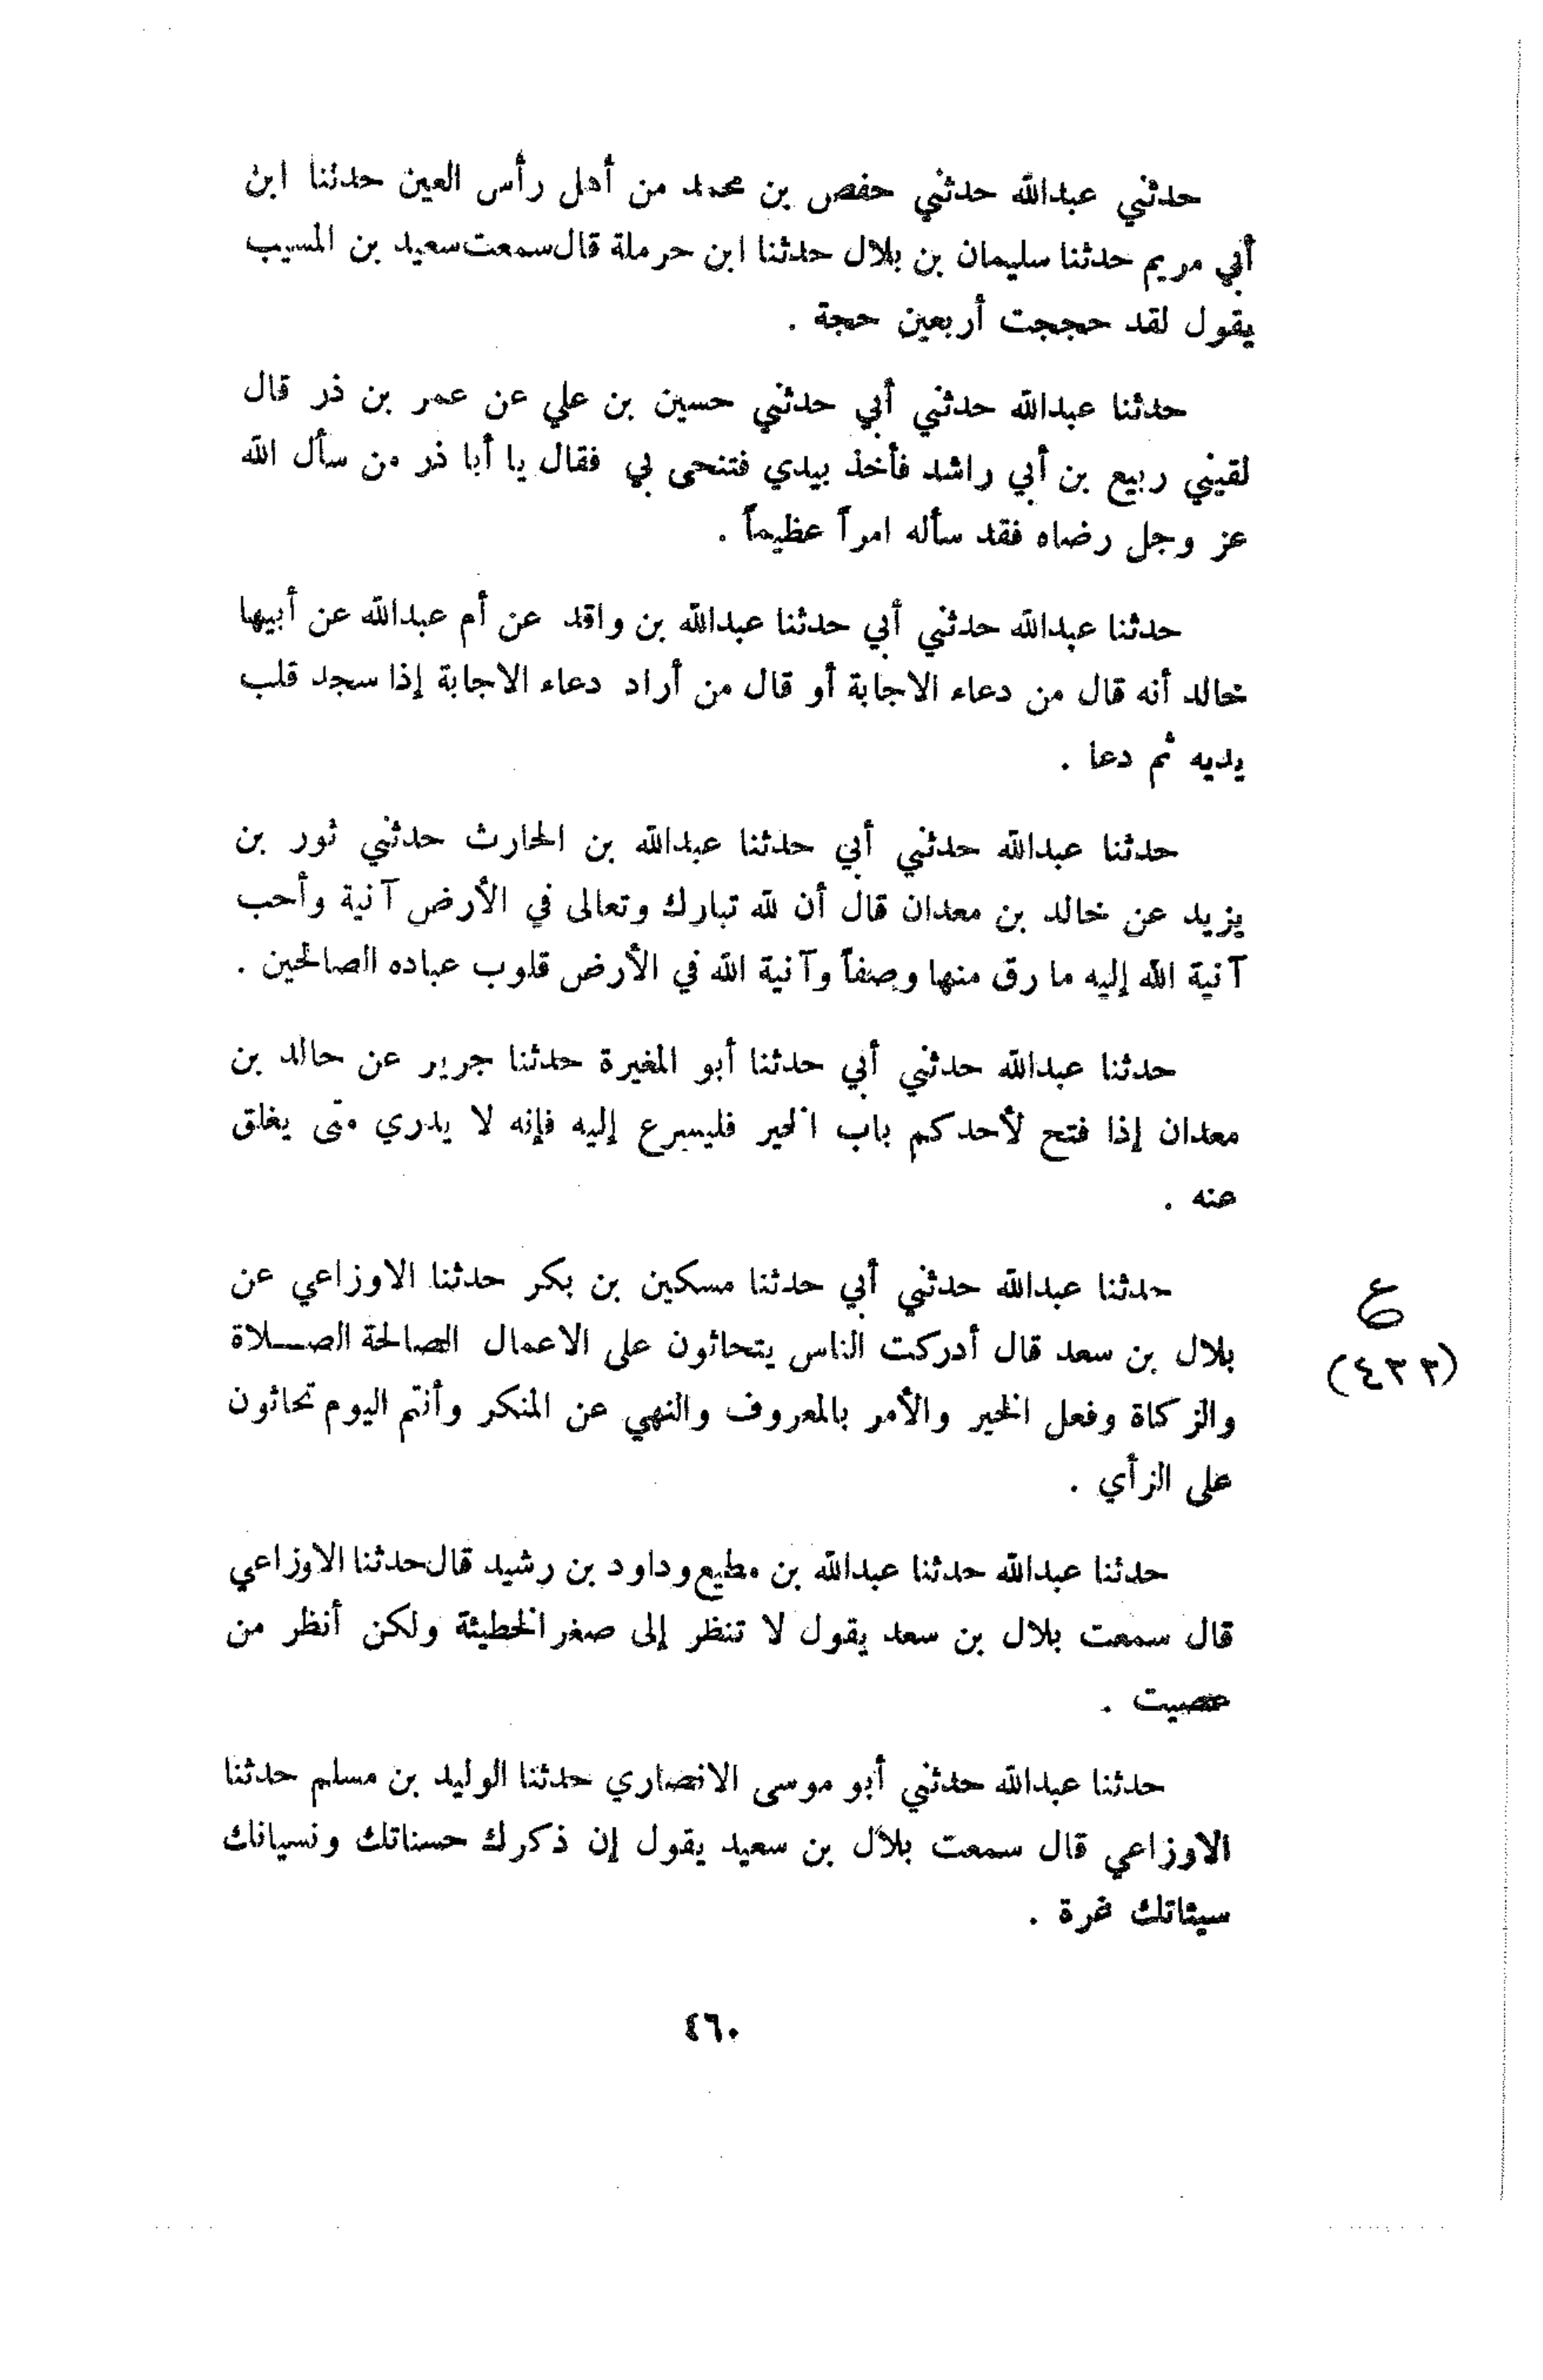 حدثني عبدالله حدثني حفص بن محمد من أهل رأس العين حدثنا ابن
أبي مريم حدثنا سليمان بن بلال حدثنا ابن حرملة قال سمعت سعيد بن المسيب
يقول لقد حججت أربعين حجة .
حدثنا عبدالله حدثني أبي حدثني حسين بن علي عن عمر بن ذر قال
لقيني ربيع بن أبي راشد فأخذ بيدي فتنحى بي فقال يا أبا ذر من سأل الله
عز وجل رضاه فقد سأله امراً عظيماً .
حدثنا عبدالله حدثني أبي حدثنا عبدالله بن واقد عن أم عبدالله عن أبيها
خالد أنه قال من دعاء الاجابة أو قال من أراد دعاء الاجابة إذا سجد قلب
يديه ثم دعا .
حدثنا عبدالله حدثني أبي حدثنا عبدالله بن الحارث حدثني ثور بن
يزيد عن خالد بن معدان قال أن لله تبارك وتعالى في الأرض آنية وأحب
آنية الله إليه ما رق منها وصفاً وآنية الله في الأرض قلوب عباده الصالحين .
حدثنا عبدالله حدثني أبي حدثنا أبو المغيرة حدثنا جرير عن خالد بن
معدان إذا فتح لأحدكم باب الخير فليسرع إليه فإنه لا يدري متى يغلق
عنه .
حدثنا عبدالله حدثني أبي حدثنا مسكين بن بكر حدثنا الاوزاعي عن
بلال بن سعد قال أدركت الناس يتحاثون على الاعمال الصالحة الصلاة
والزكاة وفعل الخير والأمر بالمعروف والنهي عن المنكر وأنتم اليوم تحاثون
على الرأي .
ع
(٤٣٣)
حدثنا عبدالله حدثنا عبدالله بن مطيع وداود بن رشيد قال حدثنا الاوزاعي
قال سمعت بلال بن سعد يقول لا تنظر إلى صغر الخطيئة ولكن أنظر من
عصيت .
حدثنا عبدالله حدثني أبو موسى الانصاري حدثنا الوليد بن مسلم حدثنا
الاوزاعي قال سمعت بلال بن سعيد يقول إن ذكرك حسناتك ونسيانك
سيئاتك غرة .
٤٦٠